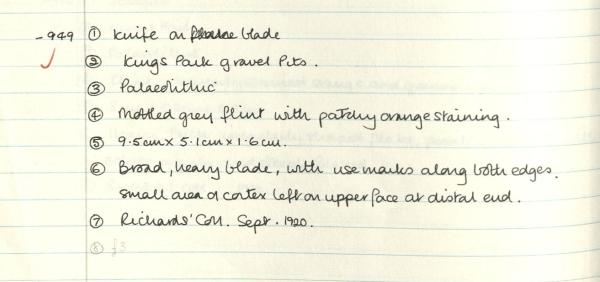 -949 ① Knife on blade
② Kings Park gravel Pits.
③ Palaeolithic
④ Mottled grey flint with patchy orange staining.
⑤ 9.5cm x 5.1cm x 1.6cm.
⑥ Broad, heavy blade, with use marks along both edges.
small area of cortex left on upper face at distal end.
⑦ Richards' Coll. Sept. 1920.
⑧ £3